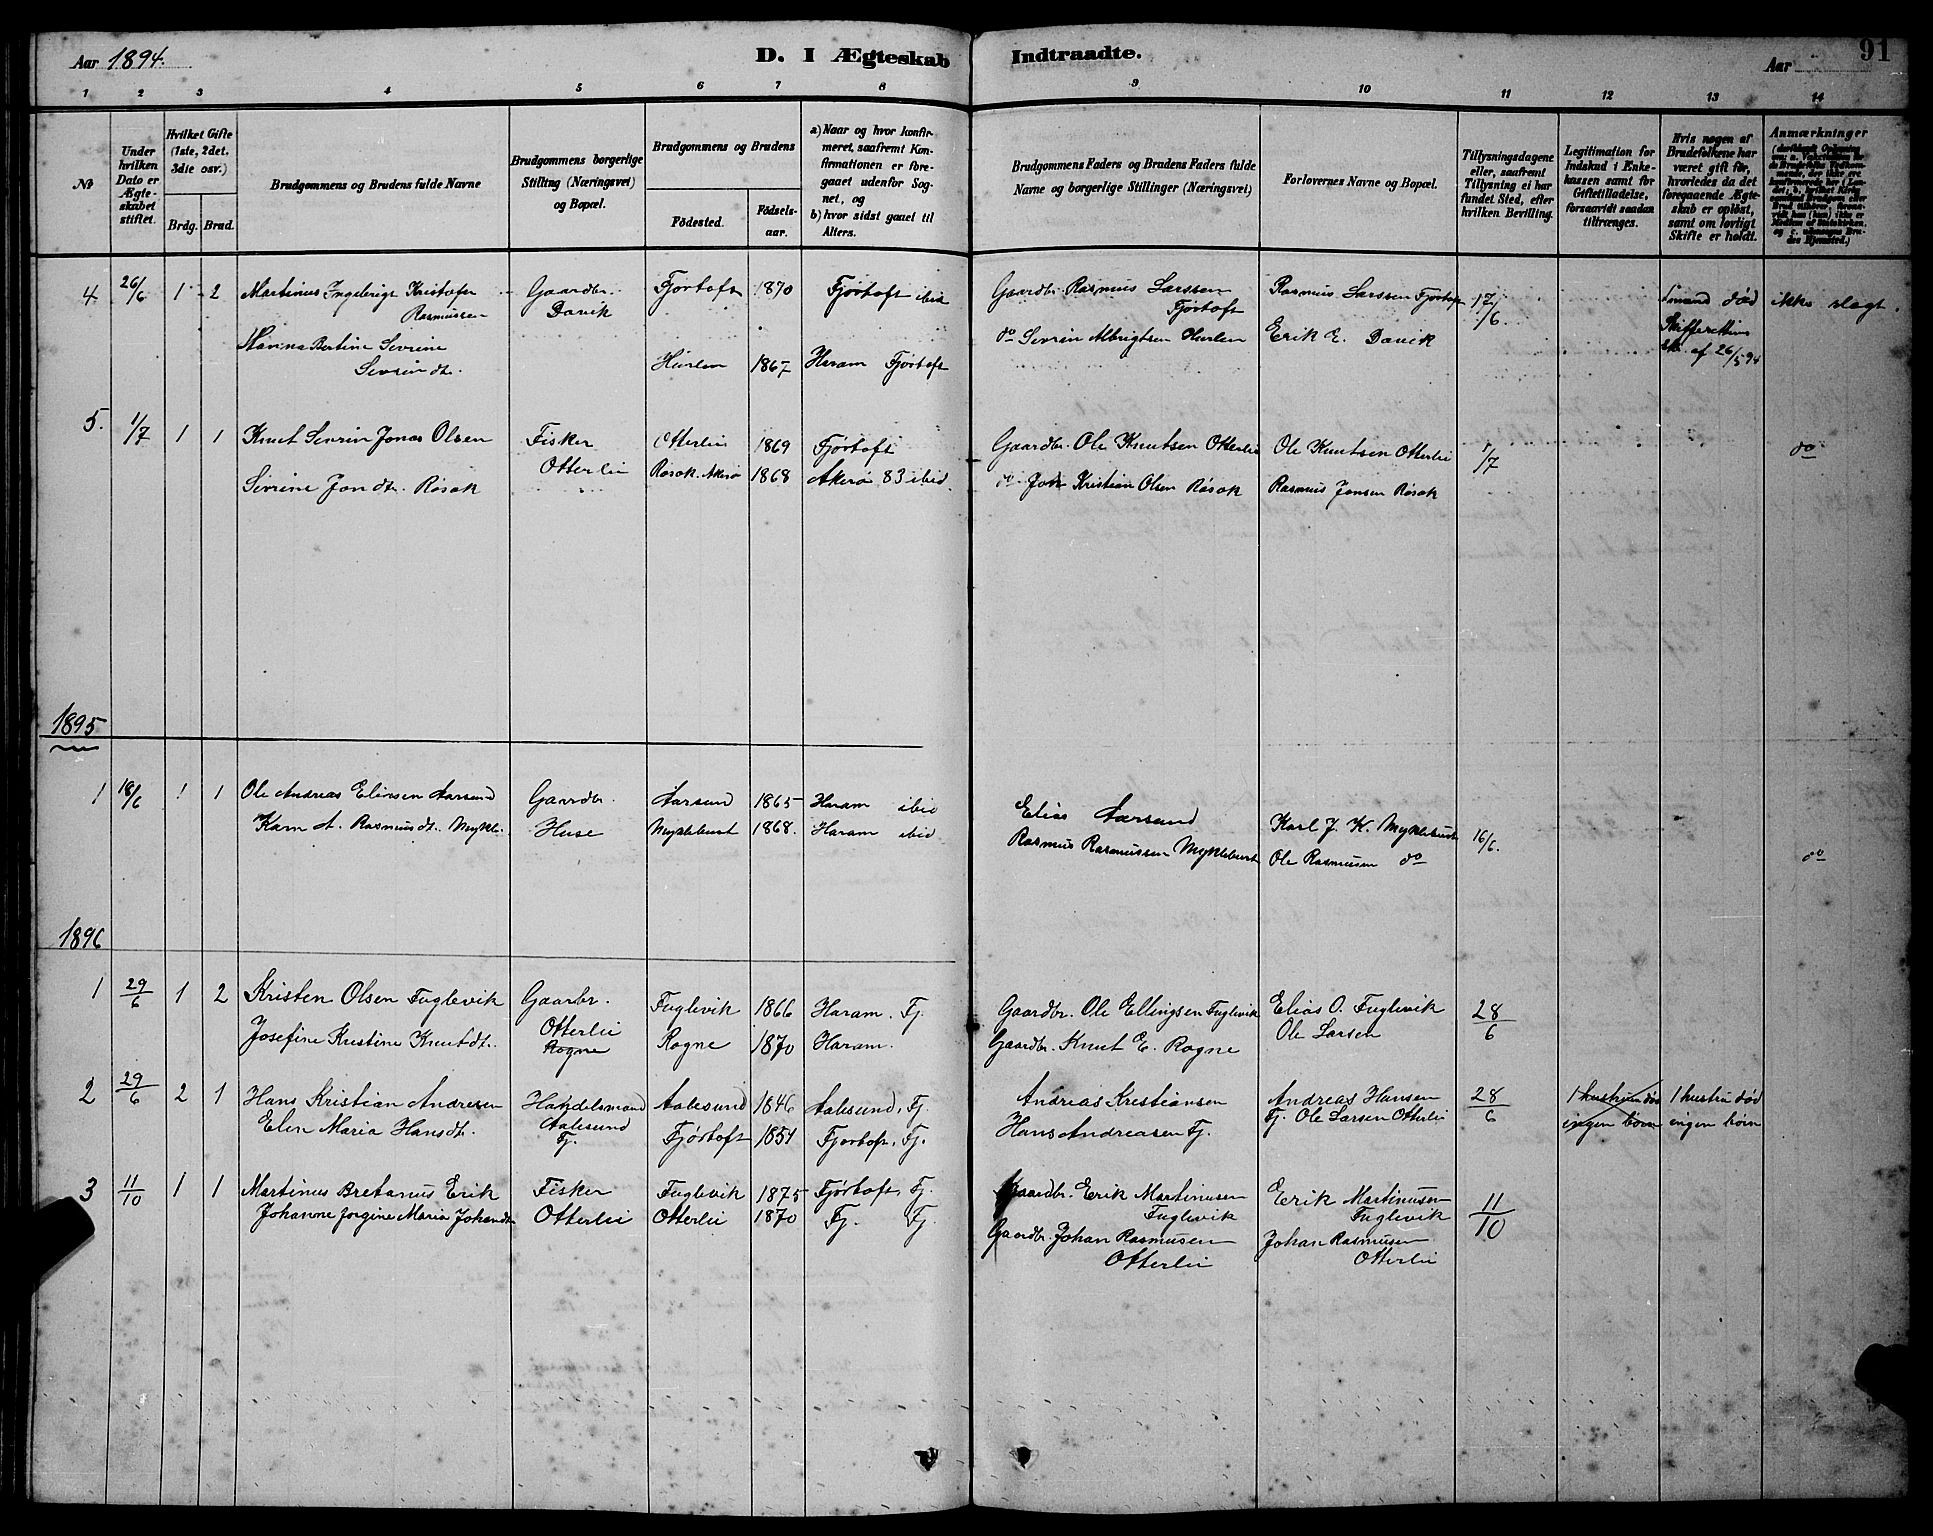 Aar 1894.
D. I Ægteskab Indtraadte.
Aar
91
1 2 3 4 5 6 7 8 9 10 11 12 13 14
No
Under hvilken Dato er Ægteskabet stiftet.
Hvilket Gifte (1ste, 2det. 3die osv.)
Brdg. Brud.
Brudgommens og Brudens fulde Navne
Brudgommens borgerlige Stilling (Næringsvei) og Bopæl.
Brudgommens og Brudens
Födested.
Födselsaar.
a) Naar og hvor konfirmeret, saafremt Konfirmationen er foregaaet udenfor Sognet, og
b) hvor sidst gaaet til Alters.
Brudgommens Faders og Brudens Faders fulde Navne og borgerlige Stillinger (Næringsvei)
Forlovernes Navne og Bopæl.
Tillysningsdagene eller, saafremt Tillysning ei har fundet Sted, efter hvilken Bevilling.
Legitimation for Indskud i Enkekassen samt for Giftetilladelse, forsaavidt saadan tiltrænges.
Hvis nogen af Brudefolkene har været gift för, hvorledes da det foregaaende Ægteskab er oplöst, samt om lovligt Skifte er holdt.
Anmærkninger
4 26/6 1 2 Martinus Ingebrigt Kristofer Gaardbr. Fjørtoft 1870 Fjørtoft ibid Gaardbr. Rasmus Larssen Rasmus Larssen Fjørtoft 17/6 død ikke slegt.
Rasmussen Davik Fjørtoft
Hanna Bertine Sevrine do Sevrin Albrigtsen Hurlen Erik E. Davik
Sevrin dt. Hurlen 1867 Haram Fjørtoft af 26/5 94
5. 1/7 1 1 Knut Sevrin Jonas Olsen Fisker Otterlei 1869 Fjørtoft Gaardbr. Ole Knutsen Otterlei Ole Knutsen Otterlei 1/7 do
Sevrine Jondt. Røsok Otterlei Røsok. Akerø 1868 Akerø 83 ibid. do Jon Kristian Olsen Røsok Rasmus Jonsen Røsok
1895
1 18/6 1 1 Ole Andreas Eliasen Aarsund Gaardbr. Aarsund 1865 Haram ibid Elias Aarsund Karl J. K. Myklebust 16/6.
Karn A. Rasmusdt. Mykle. Huse Myklebust 1868. Haram ibid Rasmus Rasmussen Myklebust Ole Rasmusen do do
1896
1 29/6 1 2 Kristen Olsen Fuglevik Gaarbr. Fuglevik 1866 Haram. Fj. Gaardbr. Ole Ellingsen Fuglevik Elias O. Fuglevik 28/6
Josefine Kristine Knutdt. Otterlei Rogne Rogne 1870 Haram. Gaardbr. Knut E. Rogne Ole Larsen
2 29/6 2 1 Hans Kristian Andresen Handelsmand Aalesund 1846 Aalesund, Fj. Andreas Kristiansen Andreas Hansen 28/6 1 hustru død 1 hustru død
Elen Maria Hansdt. Aalesund Fj. Fjørtoft 1854 Fjørtoft, Fj. Hans Andreasen Fj. Fj. Ole Larsen Otterlei ingen børn ingen børn
3 11/10 1 1 Martinus Bretanus Erik Fisker Fuglevik 1875 Fjørtoft, Fj. Gaardbr. Erik Martinusen Erik Martinusen 11/10
Johanne Jorgine Maria Johandt. Otterlei Otterlei 1870 Fj. Fj. Fuglevik Fuglevik
Gaardbr. Johan Rasmusen Johan Rasmusen
Otterlei Otterlei